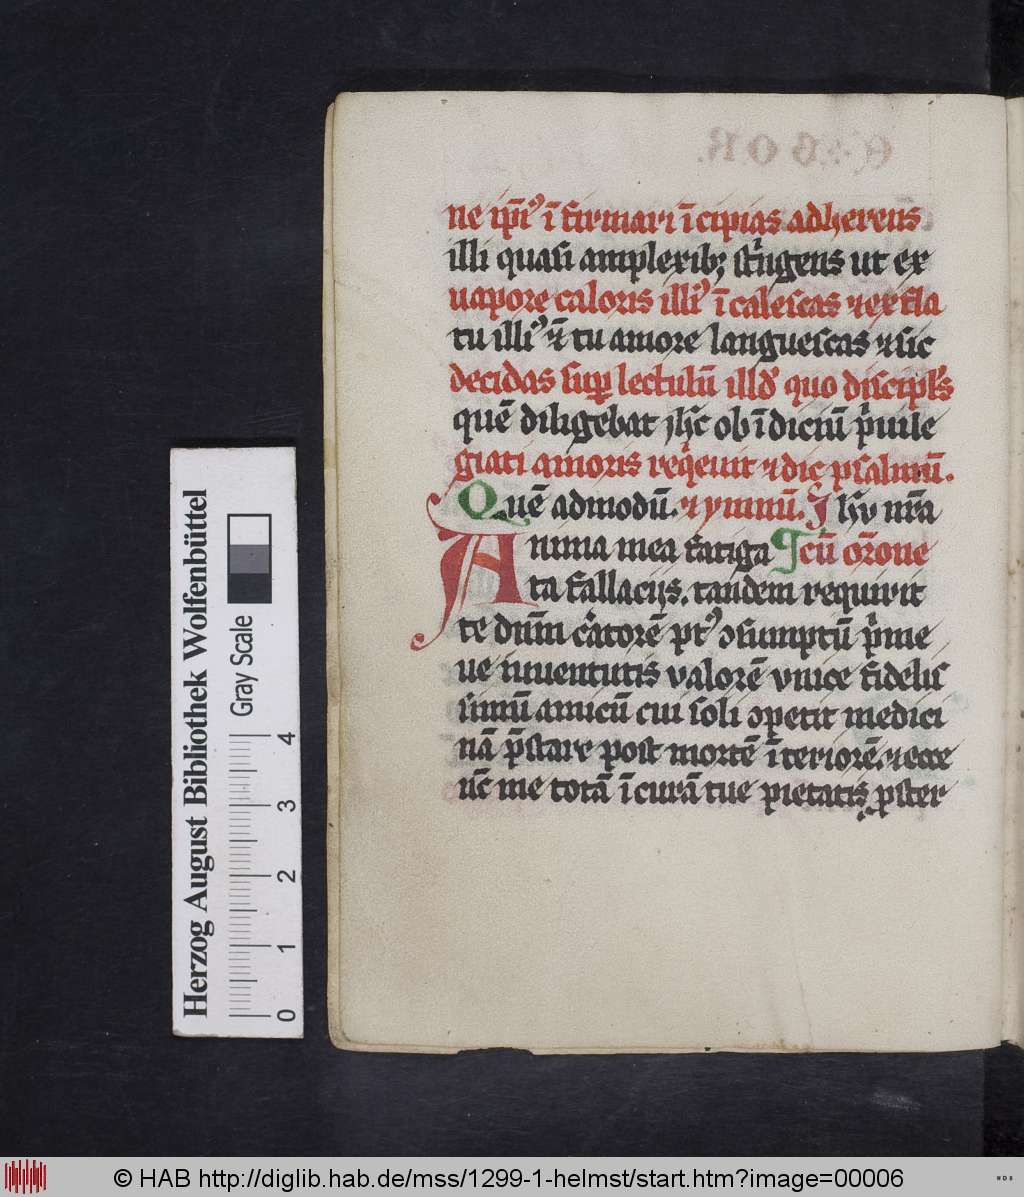 ne ip̄i⁹ ī firmari īcipias adherens
illi quasi amplexibꝫ st͛ngens ut ex
uapore caloris illi⁹ īcalescas ⁊ ex fla
tu illi⁹ ⁊ ī tu amore languescas ⁊ sic
decidas suꝑ lectulū illd̄ quo discipl̄s
quē diligebat ih̄c ob īdictū p͛uile
giati amoris req͛euit ⁊ dic psalmū.
Quē admodū. ⁊ ymnū. Ihū nr̄a
Anima mea fatiga ¶ cū or̄one
ta fallacijs. tandem requirit
te dn̄m c͛atorē pt⁹ ↄsumptū p͛me
ue iuuentutis valorē vnice fidelis
simū amicū cui soli ↄpetit medici
nā p̄stare post mortē īteriorē. ⁊ ecce
nc̄ me totā ī curā tue pietatis ꝓster
Herzog August Bibliothek Wolfenbüttel
Gray Scale
0 1 2 3 4
© HAB http://diglib.hab.de/mss/1299-1-helmst/start.htm?image=00006